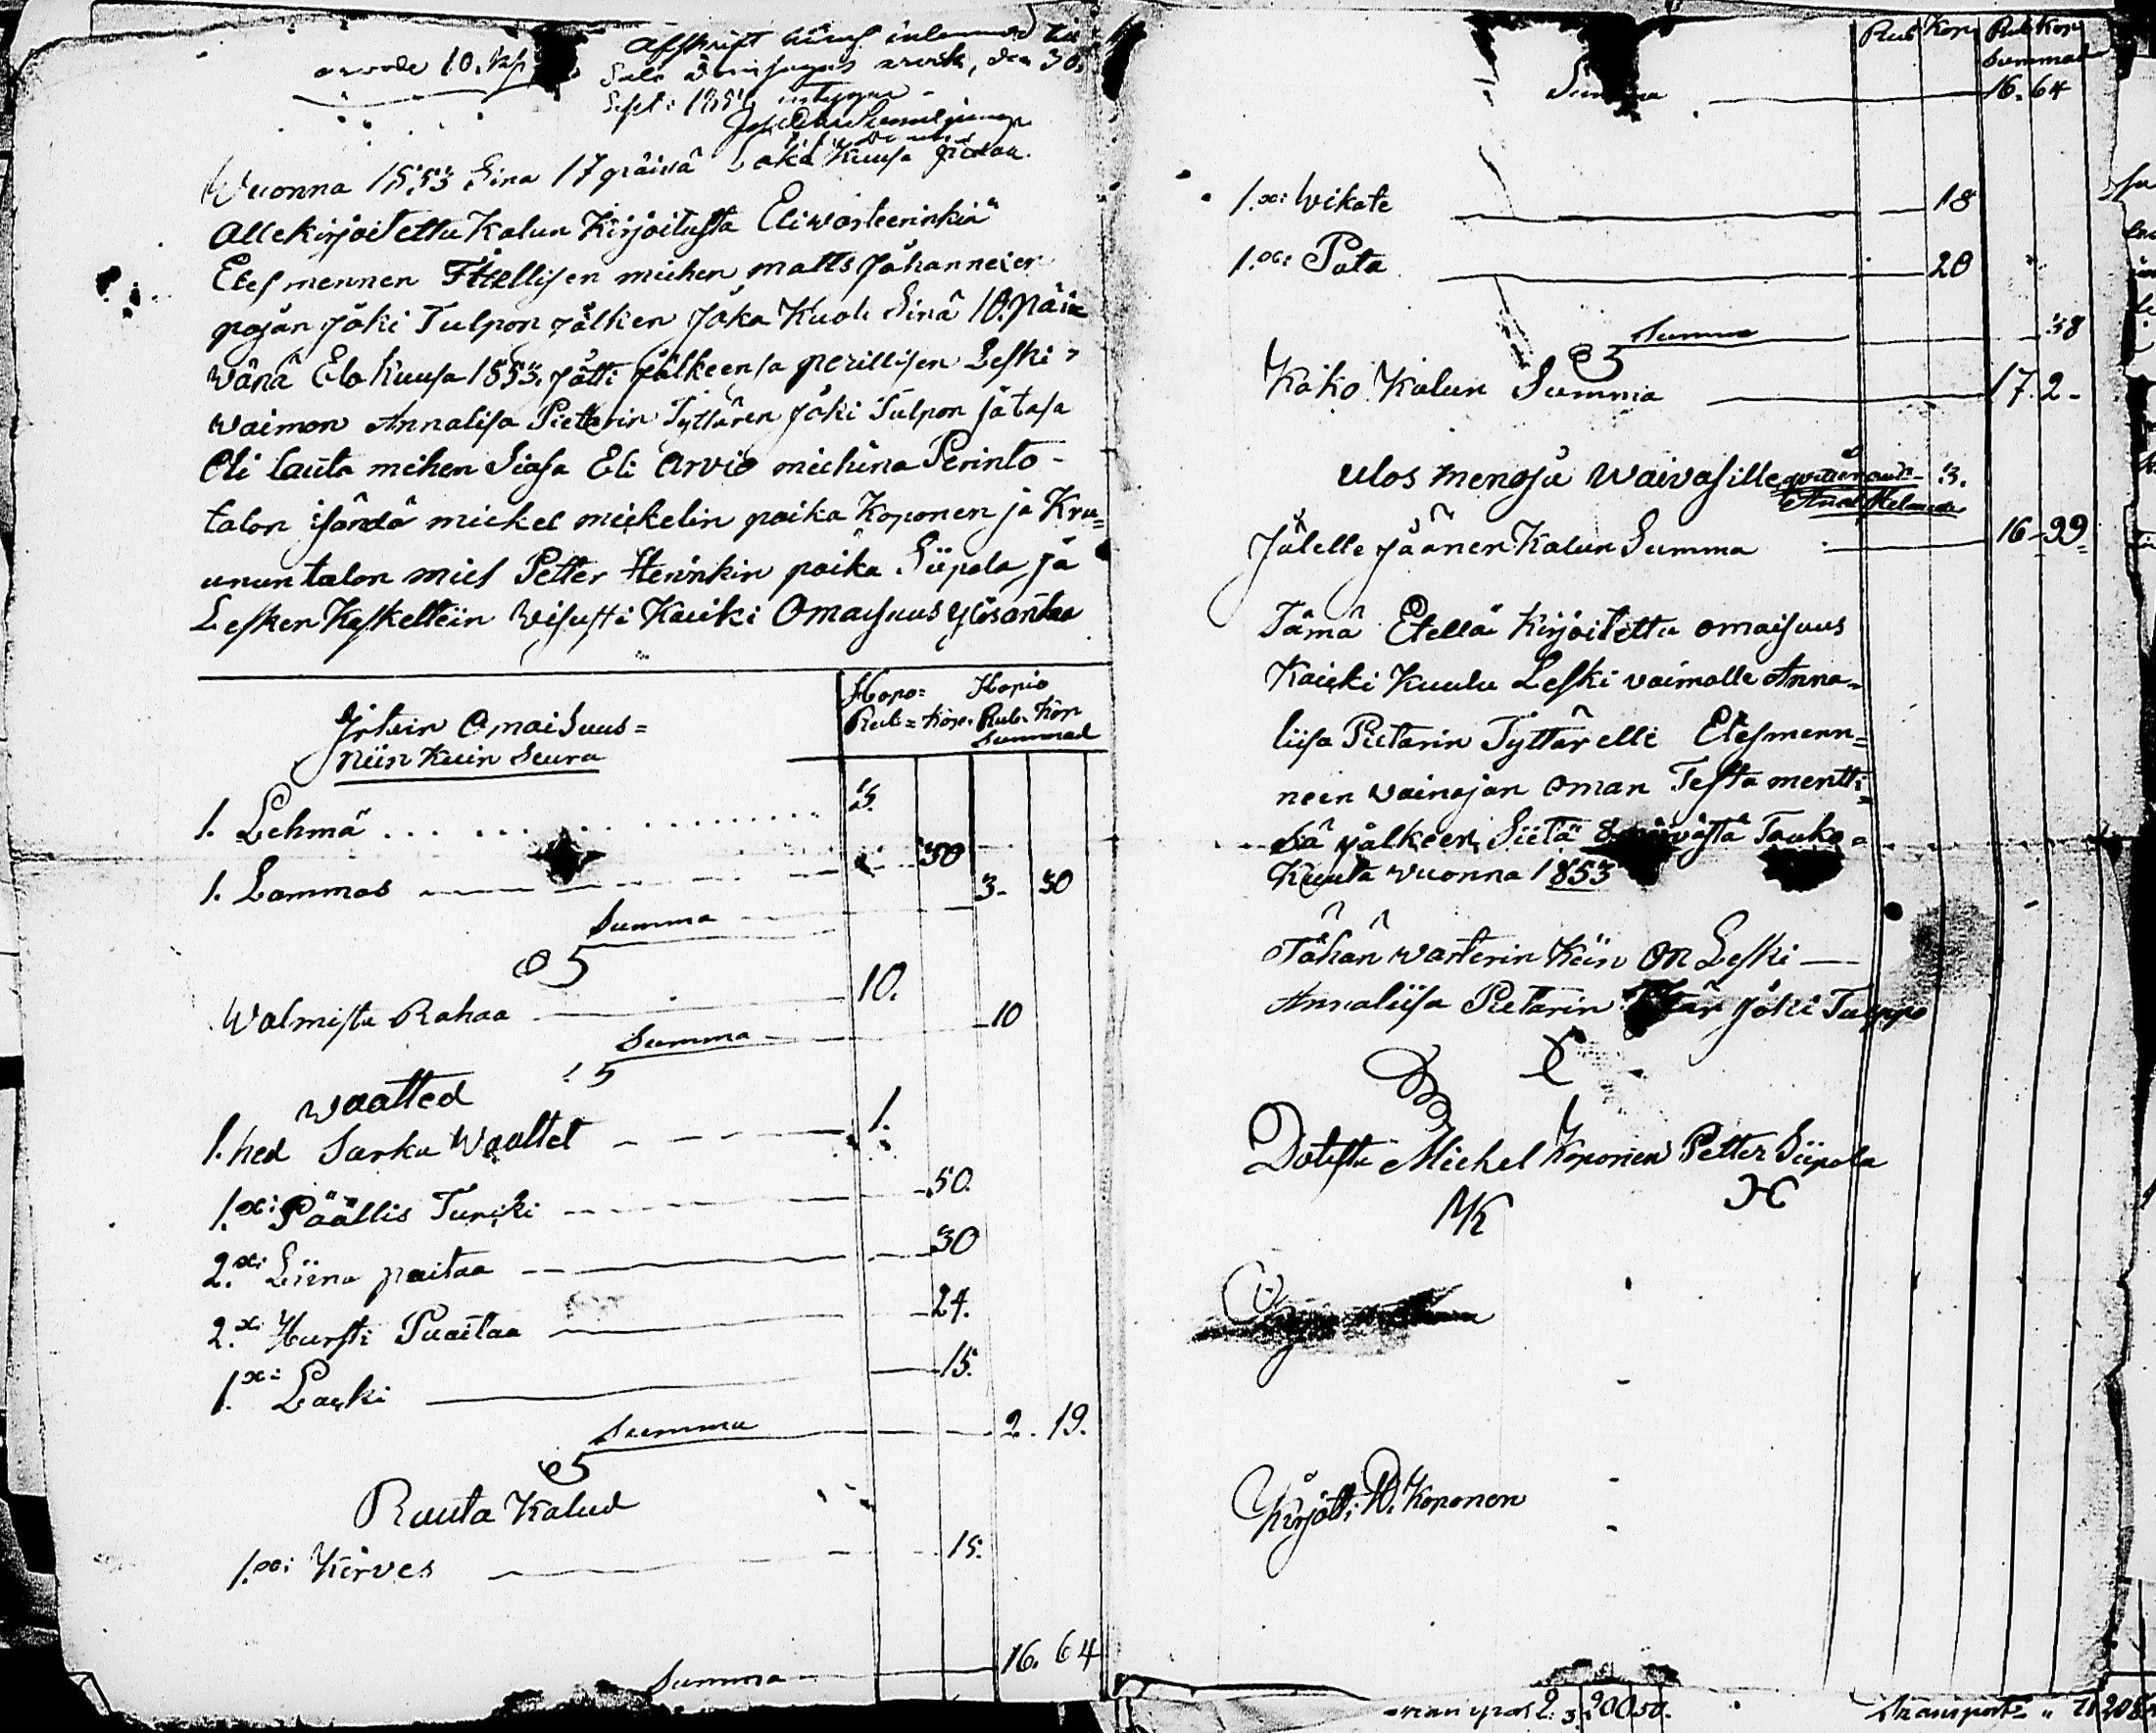 arvode 10. kp
Afskrift häraf inlemnad till
Sept: 1854 intygar
Wuonna 1853 Sina 17 päivä Loka Kuusa pidetan
Allekirjoitettu Kalun Kirjoitusta Eli wärteerinkiä
Etesmennen Itellisen miehen matts Johannexen
pojan Jöki Tulpon jälken Joka Kuoli Sinä 10. päi
wänä Elo Kuusa 1853. jätti jälkeensa perillisen Leski-
waimon Annalisa Pietarin Tyttären Jöki Tulpon ja tasa
Oli lauta mihen Siasa Eli Arvio miehina Perinto-
talon isändä mickel mickelin poika Koponen ja Kru=
unun talon mies Petter Heninkin poika Siipola ja
Lesken Keskellein wisusti Kaicki Omaisuus ylösantaa
Jrtain Omaisuus=
niin Kuin Seura
Hopo= Hopio
Rub= Kop. Rub. Kop
Summad
1. Lehmä . . . . . . . . . . . . 3.
1. Lammas 30
Summa 3. 30
Walmista Rahaa 10.
Summa 10
waatted
1. hed Sarka Waattet 1.
1. x: Päällis Turcki 50.
2. x: Liina paitaa 30
2. x: Hursti Puaitaa 24.
1. x: Lacki 15.
Summa 2. 19.
Rauta Kalud
1. x: Kirves 15.
Summa 16. 64
Rub Kop Rub Kop
Summad
Summa 16. 64
1. x: Wikate 18
1. x: Pata 20
Summa 38
Koko Kalun Summa 17. 2-
Ulos menoja Waivasille 3.
Jälelle jäänen Kalun Summa 16-99=
Tämä Etellä Kirjoitettu omaisuus
Kaicki Kuulu Leski vaimolle Anna-
liisa Pietarin Tyttärelle Etesmenn=
neen wainajan oman Testamentti=
Sä jälkeen, Siitä Touko=
Kuuta vuonna 1853
Tähän warterin Kiin on Leski
Annaliisa Pietarin Jöki Tulppo
Dotista Michel Koponen Petter Siipola
MK
Kirjotti P. Koponen
Transport